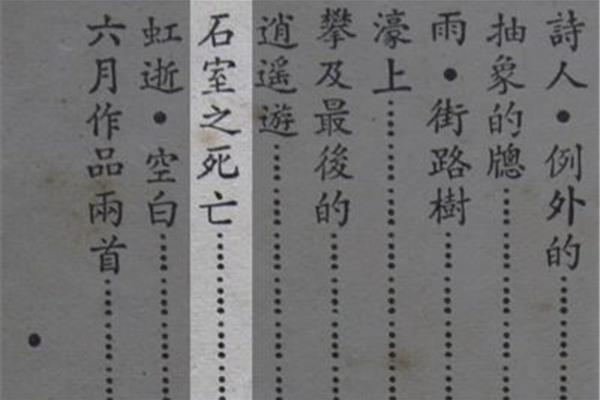 詩人•例外的
抽象的牕
雨•街路樹
濠上
攀及最後的
逍遥遊
石室之死亡
虹逝•空白
六月作品兩首